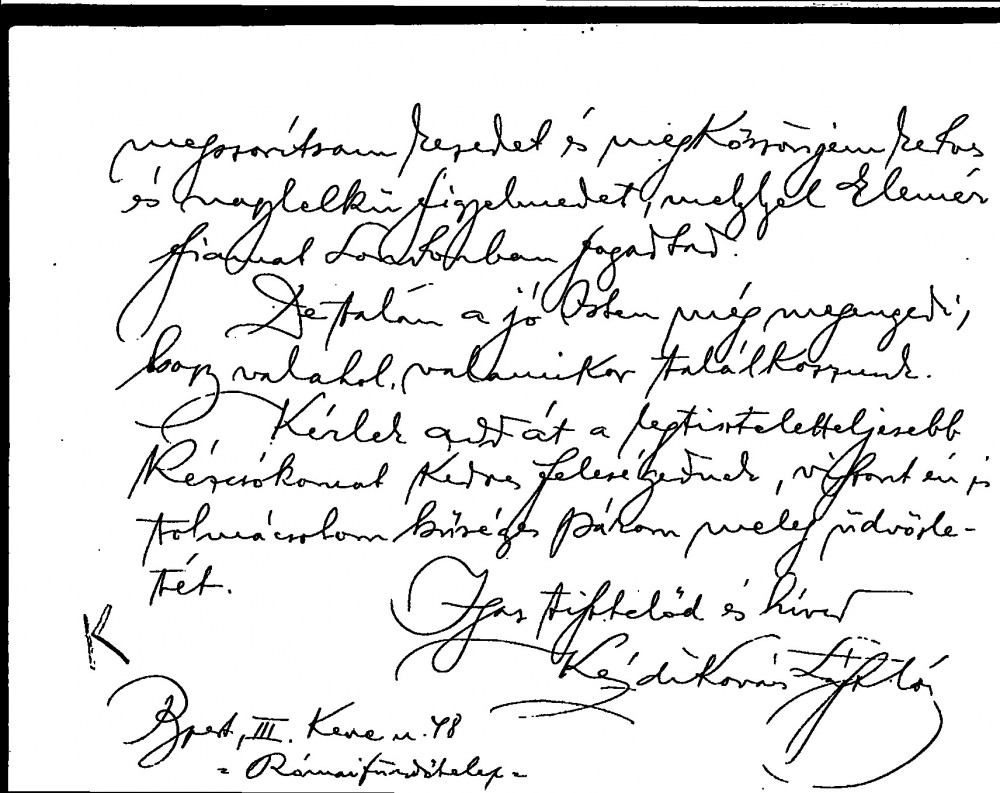 megszorítsam kezedet és megköszönjem kedves
és nagylelkű figyelmedet, mellyel Elemér
fiamat Londonban fogadtad.
De talán a jó Isten még megengedi,
hogy valahol, valamikor találkozunk.
Kérlek add át a legtiszteletteljesebb
kézcsókomat kedves feleségednek, viszont én is
tolmácsolom hűséges párom meleg üdvözle-
tét.
Igaz tisztelőd és híved
Kézdi Kovács
K
Bpest, III. Keve u. 48
= Rómaifürdőtelep =